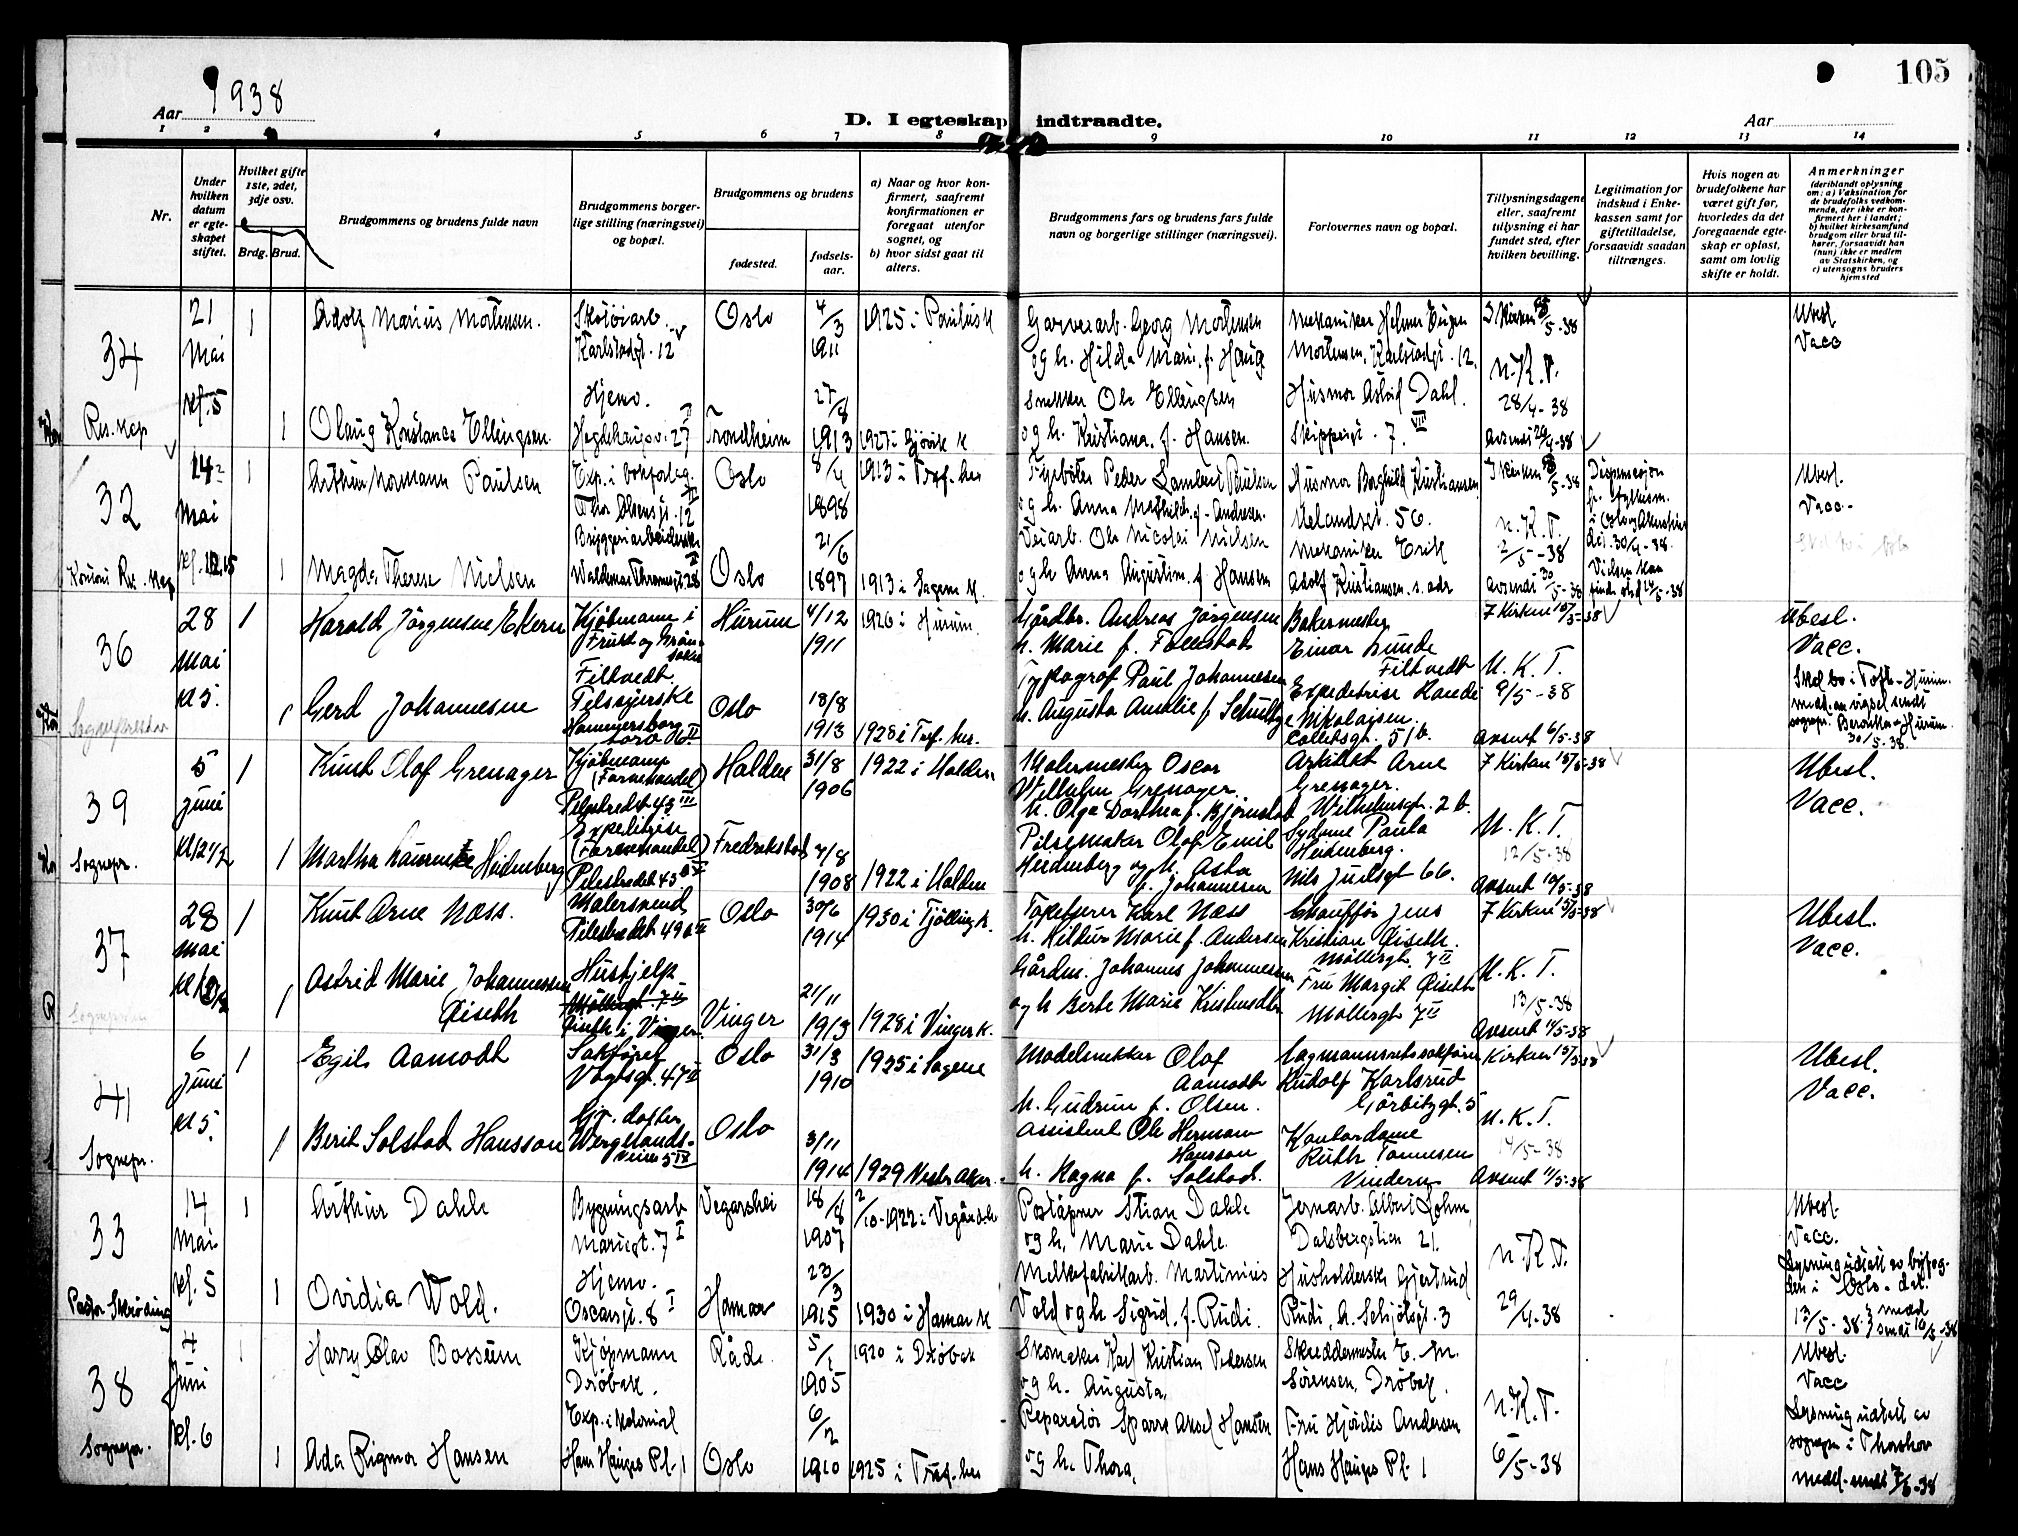 105
Aar 1938
D. I egteskap indtraadte.
Aar
1 2 3 4 5 6 7 8 9 10 11 12 13 14
Nr.
Under hvilken datum er egteskapet stiftet.
Hvilket gifte 1ste, 2det, 3dje osv.
Brdg. Brud.
Brudgommens og brudens fulde navn
Brudgommens borgerlige stilling (næringsvei) og bopæl.
Brudgommens og brudens
fødested.
fødselsaar.
a) Naar og hvor konfirmert, saafremt konfirmationen er foregaat utenfor sognet, og
b) hvor sidst gaat til alters.
Brudgommens fars og brudens fars fulde navn og borgerlige stillinger (næringsvei).
Forlovernes navn og bopæl.
Tillysningsdagene eller, saafremt tillysning ei har fundet sted, efter hvilken bevilling.
Legitimation for indskud i Enkekassen samt for giftetilladelse, forsaavidt saadan tiltrænges.
Hvis nogen av brudefolkene har været gift før, hvorledes da det foregaaende egteskap er opløst, samt om lovlig skifte er holdt.
Anmerkninger
(deriblandt oplysning om: a) Vaksination for de brudefolks vedkommende, der ikke er konfirmert her i landet; b) hvilket kirkesamfund brudgom eller brud tilhører, forsaavidt han (hun) ikke er medlem av Statskirken, og c) utensogns bruders hjemsted
34
21 Mai kl. 5
Res. kap
1 Adolf Marius Mortensen.
Skotøiarb. Karlstadgt. 12 V
Oslo
4/3 1911
1925 i Paulus k
Garverarb. Georg Mortensen
og h. Hilda Marie f. Haug
Mekaniker Helmer Eugen
Mortensen, Karlstadgt. 12.
N.K.T.
28/4-38
1 Olaug Konstance Ellingsen
Hjemv.
Hegdehaugsv. 27 I
Trondheim
27/8 1913
1927 i Gjøvik k
Snekker Ole Ellingsen
og h. Kristiana f. Hansen.
Husmor Astrid Dahl.
Skippergt. 7. VII
Avsendt 29/4-38
Ubesl
Vacc
32
14 Mai kl. 12.15
Kontoni Res. kap
1 Arthur Normann Paulsen
Thor Olsens gt. 12
Oslo
8/4 1898
1913 i Tref. k
Fyrbøter Peder Lambert Paulsen
og h. Anna Mathilde f. Andresen.
Husmor Borghild Kristiansen
Uelandsgt. 56.
N.K.T.
2/5-38
1 Magda Therese Nielsen
Bryggeriarbeiderske
Waldemar Thranesgt. 28
Oslo
21/6 1897
1913 i Sagene k.
Veiarb. Ole Nicolai Nielsen
og h Anna Augustine f Hansen
Mekaniker Erik
Adolf Kristiansen. s. adr
Avsendt 30/5-38
Dispensasjon
fr. fylkesm.
i Oslo og Akershus
dat. 30/4-38.
Vielsen kan
finde sted 14/5-38
Ubesl.
Vacc.
36
28 Mai kl 5.
Sogneprest
1 Harald Jörgensen Ekern
Kjøbmann i
Frukt og Grøn-
saker
Filtvedt
Hurum
4/12 1911
1926 i Hurum.
Gårdbr. Andreas Jörgensen
h. Marie f. Tollestad
Bakermester
Einar Lunde
Filtvedt
7 Kirken 15/5-38
N. K. T.
9/5-38
1 Gerd Johannesen
Pelssyerske
Hammersborg
torv 16 II
Oslo
18/8 1913
1928 i Tref. k
Typograf Paul Johannesen
h. Augusta Amalie f Schultze
Expeditrise Haudi
Nikolaisen
Colletsgt. 51 b.
Avsendt 6/5-38
Ubesl.
Vacc.
Skal bo i Tofte - Hurum.
Med. om vigsel sendt
sognepr. Hurum
30/5-38.
39
5 juni kl 12 1/2
Sognepr.
1 Knut Olof Grenager
Kjøbmann
(Farvehandel)
Pilestredet 43 III
Halden
31/8 1906
1922 i Halden
Malermester Oscar
Wilhelm Grenager
h. Olga Dorthea f. Bjørnstad
Arkitekt Arne
Grenager.
Wilhelmsgt. 2 b.
7 Kirken 15/5-38
N. K. T.
12/5-38
1 Martha Laurentze Heidenberg
Expeditrise
(Farvehandel)
Pilestredet 43 b V
Fredrikstad
7/8 1908
1922 i Halden
Pølsemaker Olof Emil
Heidenberg og h. Asta
f. Johannesen
Sydame Paula
Heidenberg.
Nils Juelsgt 66.
Avsendt 10/5-38
Ubesl.
Vacc.
37
28 mai
Sogneprest
1 Knut Arne Næss.
Malersvend
Pilestredet 49 a II
Oslo
30/6 1914
1930 i Tjølling k.
Tapetserer Karl Næss
h. Hildur Marie f. Andersen
Chauffør Jens
Kristian Öiseth.
Möllergt. 7 II
7 Kirken 15/5-38
N. K. T.
13/5-38
1 Astrid Marie Johannessen
Öiseth
Hushjelp
Möllergt. 7 II
Öiseth i Vinger.
Vinger
21/11 1913
1928 i Vinger k.
Gårdm. Johannes Johannessen
og h Berte Marie Kristensdtr
Fru Margit Öiseth
Möllergt 7 II
Avsendt 11/5-38
Ubesl.
Vacc.
41
6 juni kl 5.
Sognepr.
1 Egil Aamodt
Sakfører
Vogtsgt. 47 II
Oslo
31/3 1910
1925 i Sagene
Modelsnekker Olaf
Aamodt
h. Gudrun f. Olsen.
Lagmannsrettssakfører
Rudolf Karlsrud
Gørbitzgt. 5
Kirken 15/5-38
N. K. T.
14/5-38
1 Berit Solstad Hansson
Gjr. datter
Wergelands-
veien 5 III
Oslo
3/11 1914
1929 Vestre Aker.
Assistent Ole Herman
Hansson
h. Ragna f. Solstad.
Kontordame
Ruth Tønnesen
Vinderen
Avsendt 11/5-38
Ubesl.
Vacc.
33
14 Mai kl. 5
Pastor Skrøding
1 Arthur Dahle
Bygningsarb
Mariegt. 7 I
Vegarshei
18/8 1907
2/10-1922 i Vegårdsh.
Poståpner Stian Dahle
og h. Marie Dahle.
Jernarb. Albert Lohm
Dalsbergstien 21.
N.K.T.
1 Ovidia Wold.
Hjemv.
Oscarsgt. 8 I
Hamar
23/3 1915
1930 i Hamar k
Melkefabrikkarb. Martinius
Vold og h Sigrid f. Rudi.
Husholderske Gjertrud
Rudi, h. Schjølsgt. 3
29/4-38
Ubesl.
Vacc.
Lysning utstedt av byfog-
den i Oslo. dat.
13/5-38. med
sendt 16/5-38
38
4 Juni kl. 6
Sognepr.
1 Harry Olav Bossum
Kjøpmann
Drøbak.
Råde.
1905
1920 i Drøbak
Skomaker Karl Kristian Pedersen
og h. Augusta.
Skreddermester E. M.
Sørensen, Drøbak.
N.K.T.
1 Ada Rigmor Hansen
Exp. i kolonial
Hans Hauges Pl. 1
Oslo
6/2 1910
1925 i Tref. k
Reparatør Sparre Aksel Hansen
og h. Thora.
Fru Hjørdis Andersen
Hans Hauges Pl. 1
6/5-38
Ubesl.
Vacc
Lysning utstedt av
sognepr i Thorshov
Medd. sendt 7/6-38